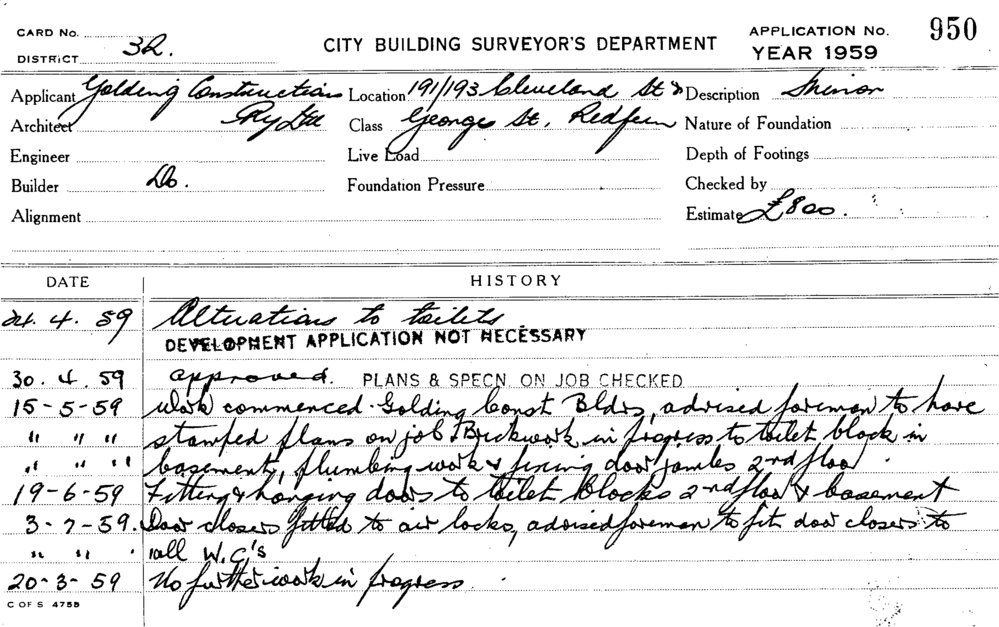 CARD No.
DISTRICT 32.
CITY BUILDING SURVEYOR'S DEPARTMENT
APPLICATION No. 950
YEAR 1959
Applicant Golding Construction Location 191/193 Cleveland St & Description Minor
Architect Pty Ltd Class George St. Redfern Nature of Foundation
Engineer Live Load Depth of Footings
Builder Do. Foundation Pressure Checked by
Alignment Estimate £800.
DATE HISTORY
24.4.59 Alterations to toilets
DEVELOPMENT APPLICATION NOT NECESSARY
30.4.59 approved. PLANS & SPECN. ON JOB CHECKED
15-5-59 Work commenced. Golding Const Bldrs, advised foreman to have
" " " stamped plans on job & Brickwork in progress to toilet block in
" " " basement, plumbing work & fixing door jambs 2nd floor.
19-6-59 Fitting & hanging doors to toilet blocks 2nd floor & basement
3-7-59. Door closers fitted to air locks, advised foreman to fit door closers to
" " . all W.C's
20-3-59 No further work in progress.
C OF S 4755